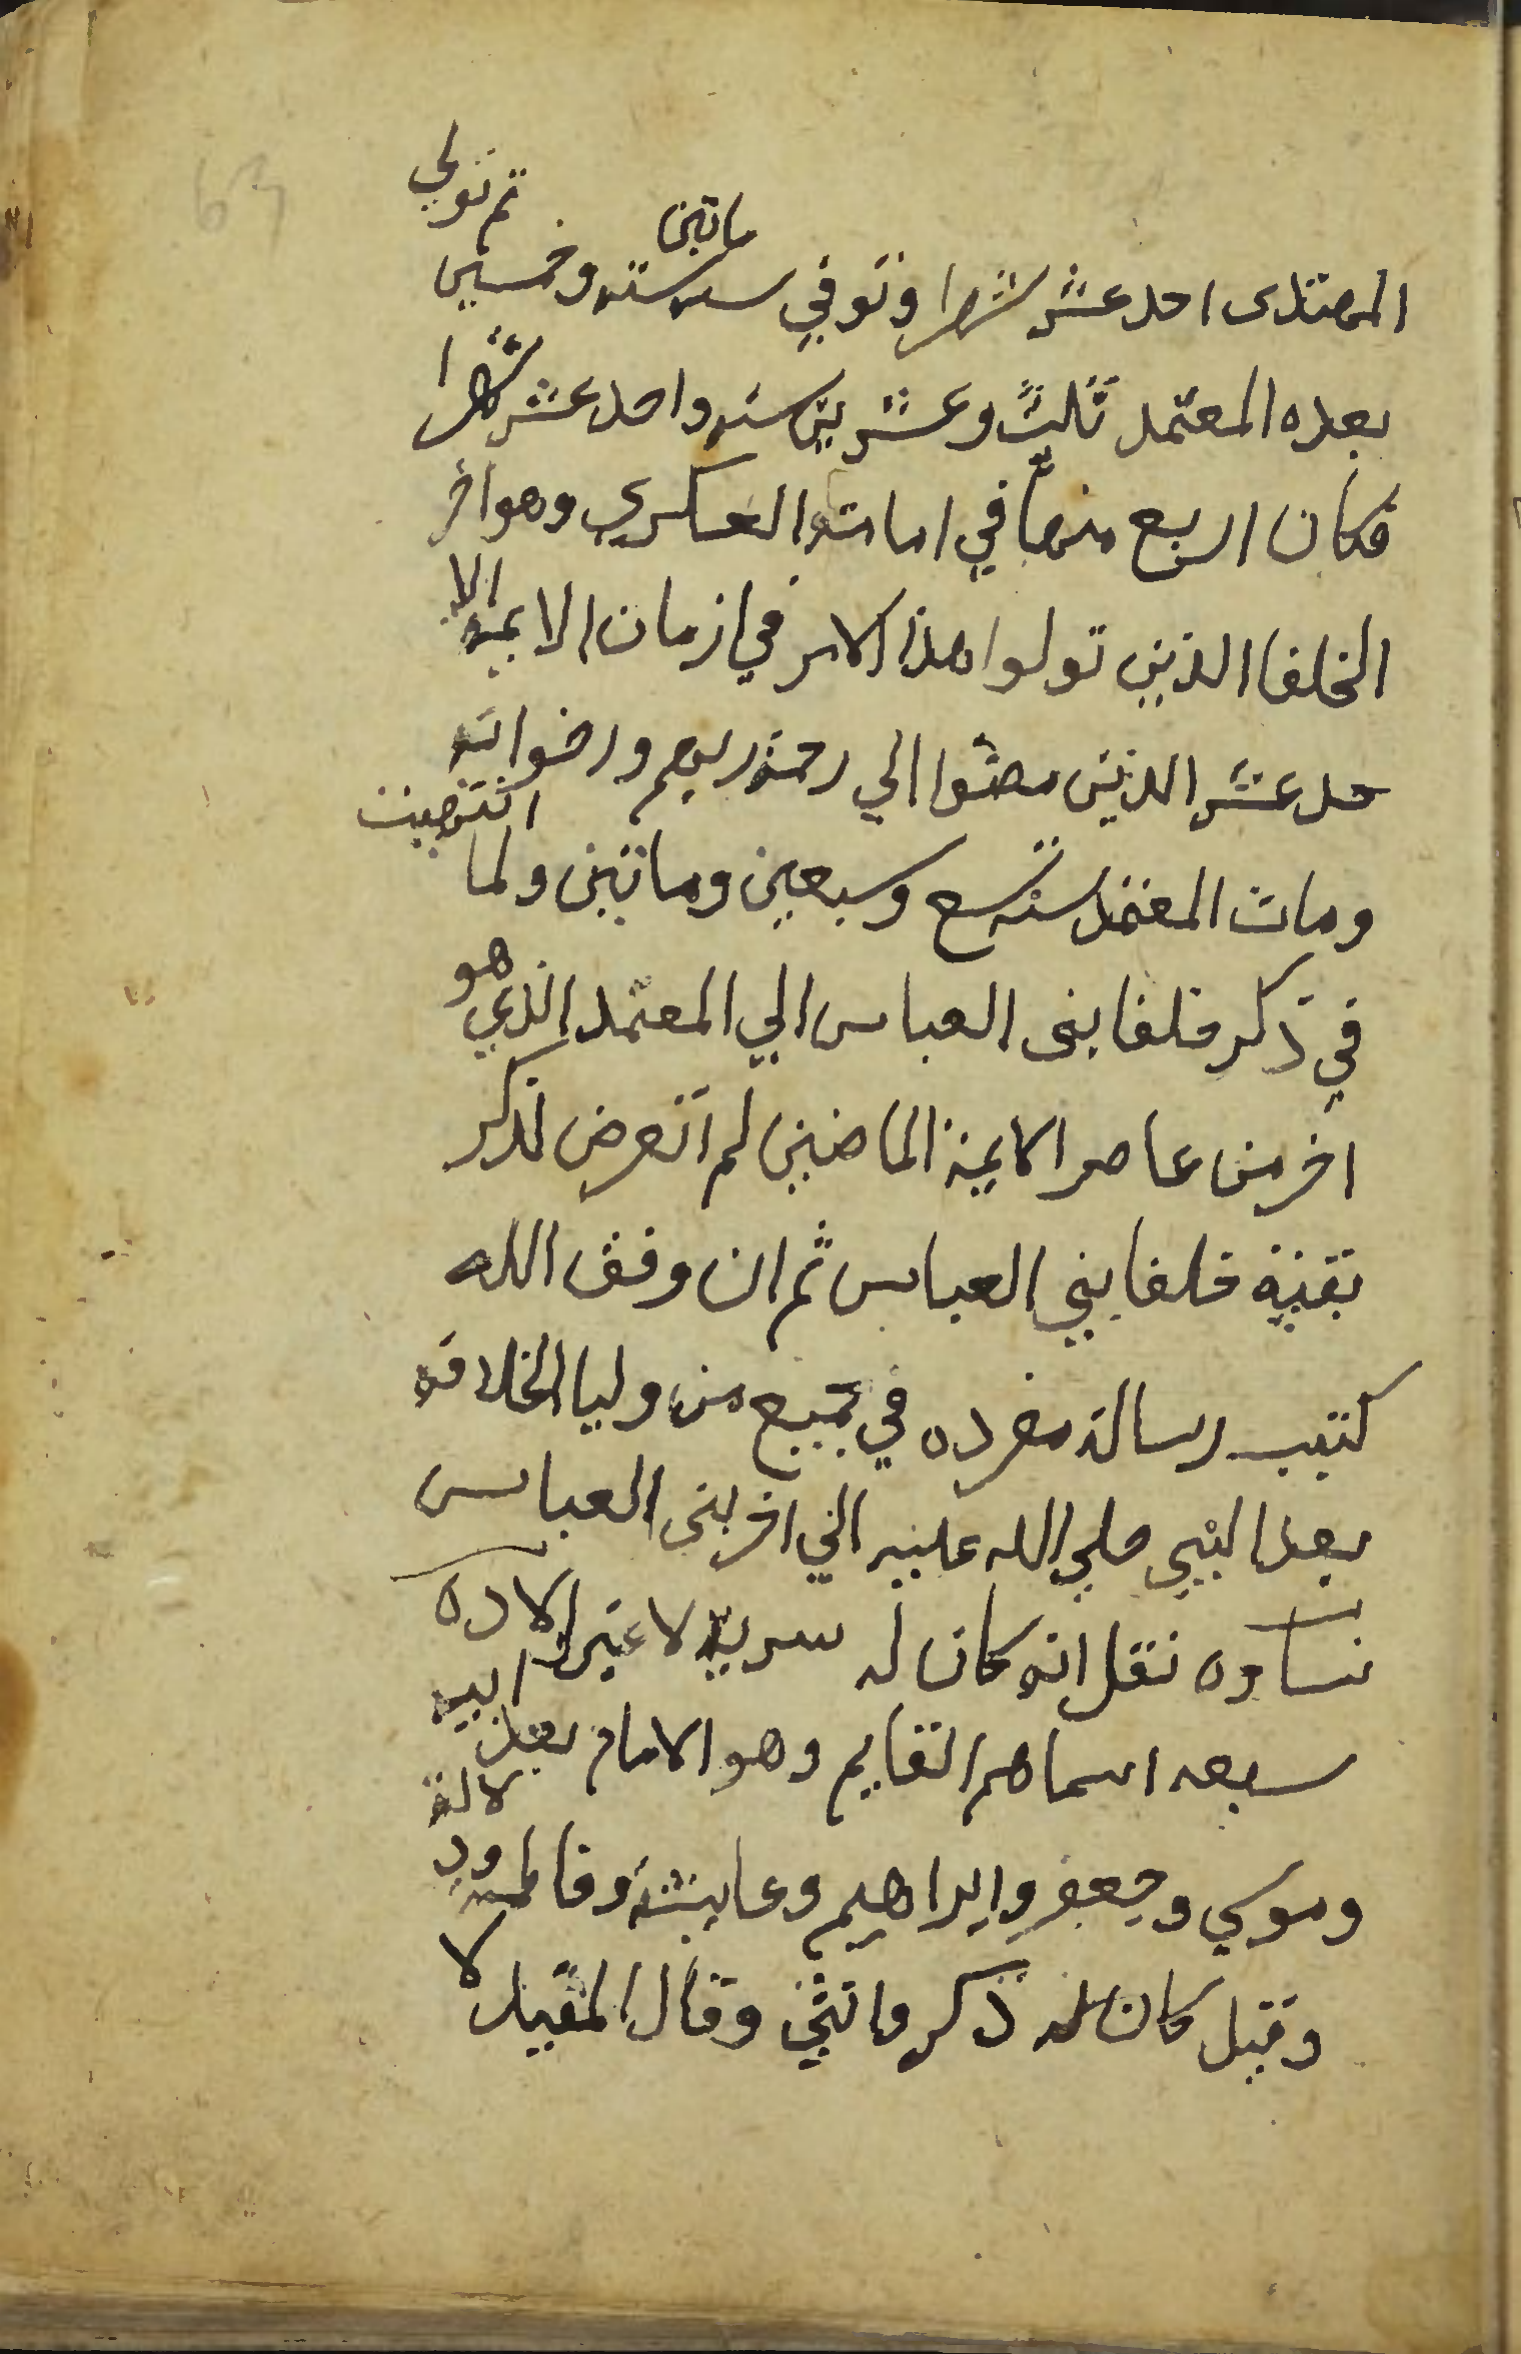 المهتدى احد عشر شهرا وتوفي سنه سته وخمسين ماتين ثم تولي
بعده المعتمد ثلثً وعشرين سنه واحد عشر شهرا
فكان اربع منها في امامته العسكري وهو اخر
الخلفا الذين تولوا هذا الامر في ازمان الايمه الا
حد عشر الذين مضوا الي رحمة ربهم ورضوانه
ومات المعتمد سنه تسع وسبعين وماتين ولما انتهيت
في ذكر خلفا بنى العباس الي المعتمد الذي هو
اخر من عاصر الايمة الماضين لم اتعرض لذكر
بقية خلفا بني العباس ثم ان وفق الله
كتبت رسالة مفرده في جميع من وليا الخلافه
بعد النبي صلي الله عليه الي اخر بنى العباس
نساوه نقل انه كان له سرية لا غير اولاده
سبعه اسماهم القايم وهو الامام بعد ابيه
وموسي وجعفر وابراهيم وعايشة وفاطمه ودلالة
وقيل كان له ذكر وانثي وقال المفيد لا